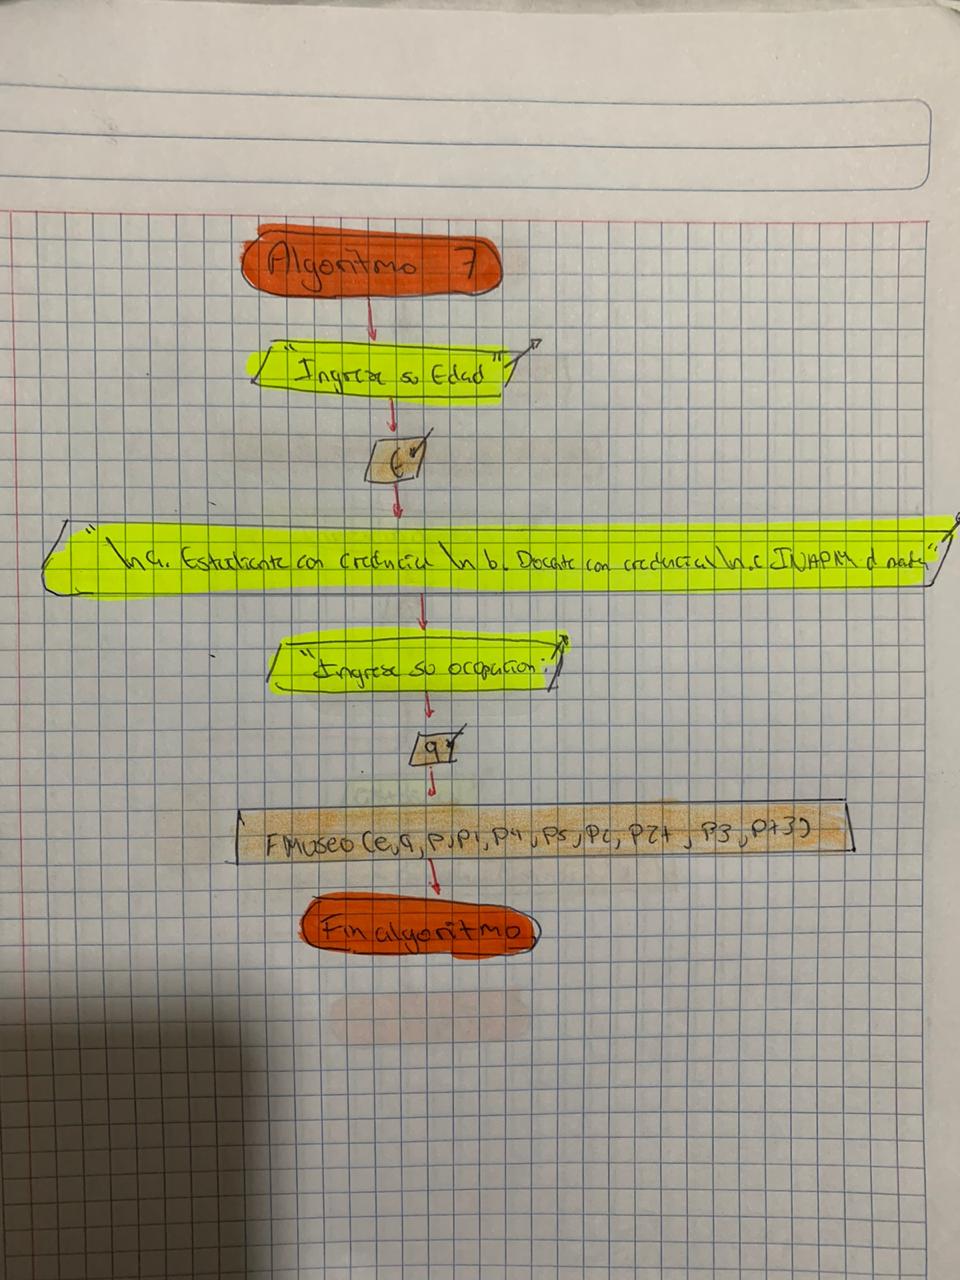 Algoritmo 7
"Ingrese su Edad"
e
"\n a. Estudiante con credencial \n b. Docente con credencial \n.c INAPM d nada"
"Ingrese su ocupacion:
q
FMuseo (e,q,p,p1,p4,p5,p2,p2t,p3,pt3)
Fin algoritmo